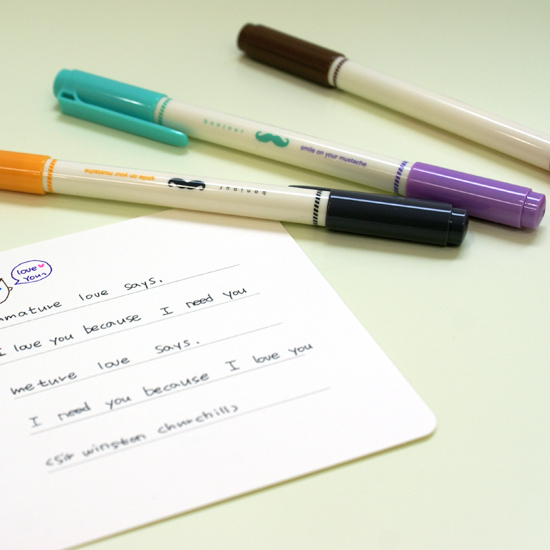 bonjour
smile on your mustache
smile on your mustache
bonjour
love
you?
mmature love says.
I love you because I need you
meture love says.
I need you because I love you
<Sir winston churchill>